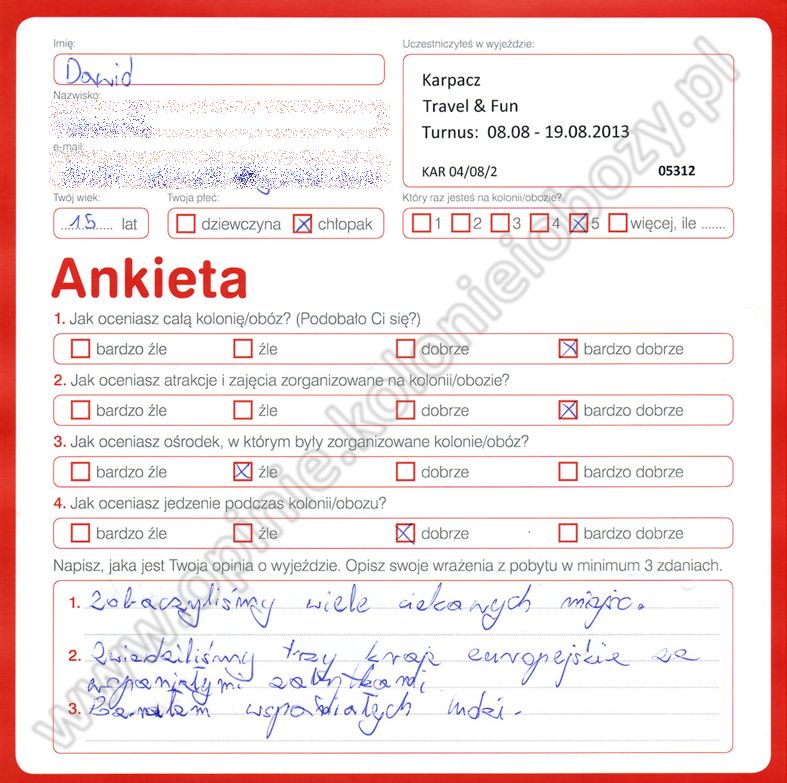 Imię:
Dawid
Nazwisko:
e-mail:
Twój wiek:
15 lat
Twoja płeć:
dziewczyna chłopak
Uczestniczyłeś w wyjeździe:
Karpacz
Travel & Fun
Turnus: 08.08 - 19.08.2013
KAR 04/08/2 05312
Który raz jesteś na kolonii/obozie?
1 2 3 4 5 więcej, ile .......
Ankieta
1. Jak oceniasz całą kolonię/obóz? (Podobało Ci się?)
bardzo źle źle dobrze bardzo dobrze
2. Jak oceniasz atrakcje i zajęcia zorganizowane na kolonii/obozie?
bardzo źle źle dobrze bardzo dobrze
3. Jak oceniasz ośrodek, w którym były zorganizowane kolonie/obóz?
bardzo źle źle dobrze bardzo dobrze
4. Jak oceniasz jedzenie podczas kolonii/obozu?
bardzo źle źle dobrze bardzo dobrze
Napisz, jaka jest Twoja opinia o wyjeździe. Opisz swoje wrażenia z pobytu w minimum 3 zdaniach.
1. Zobaczyliśmy wiele ciekawych miejsc.
2. Zwiedziliśmy trzy kraje europejskie ze
wspaniałymi zabytkami.
3. wspaniałych ludzi.
www.opinie.kolonieiobozy.pl